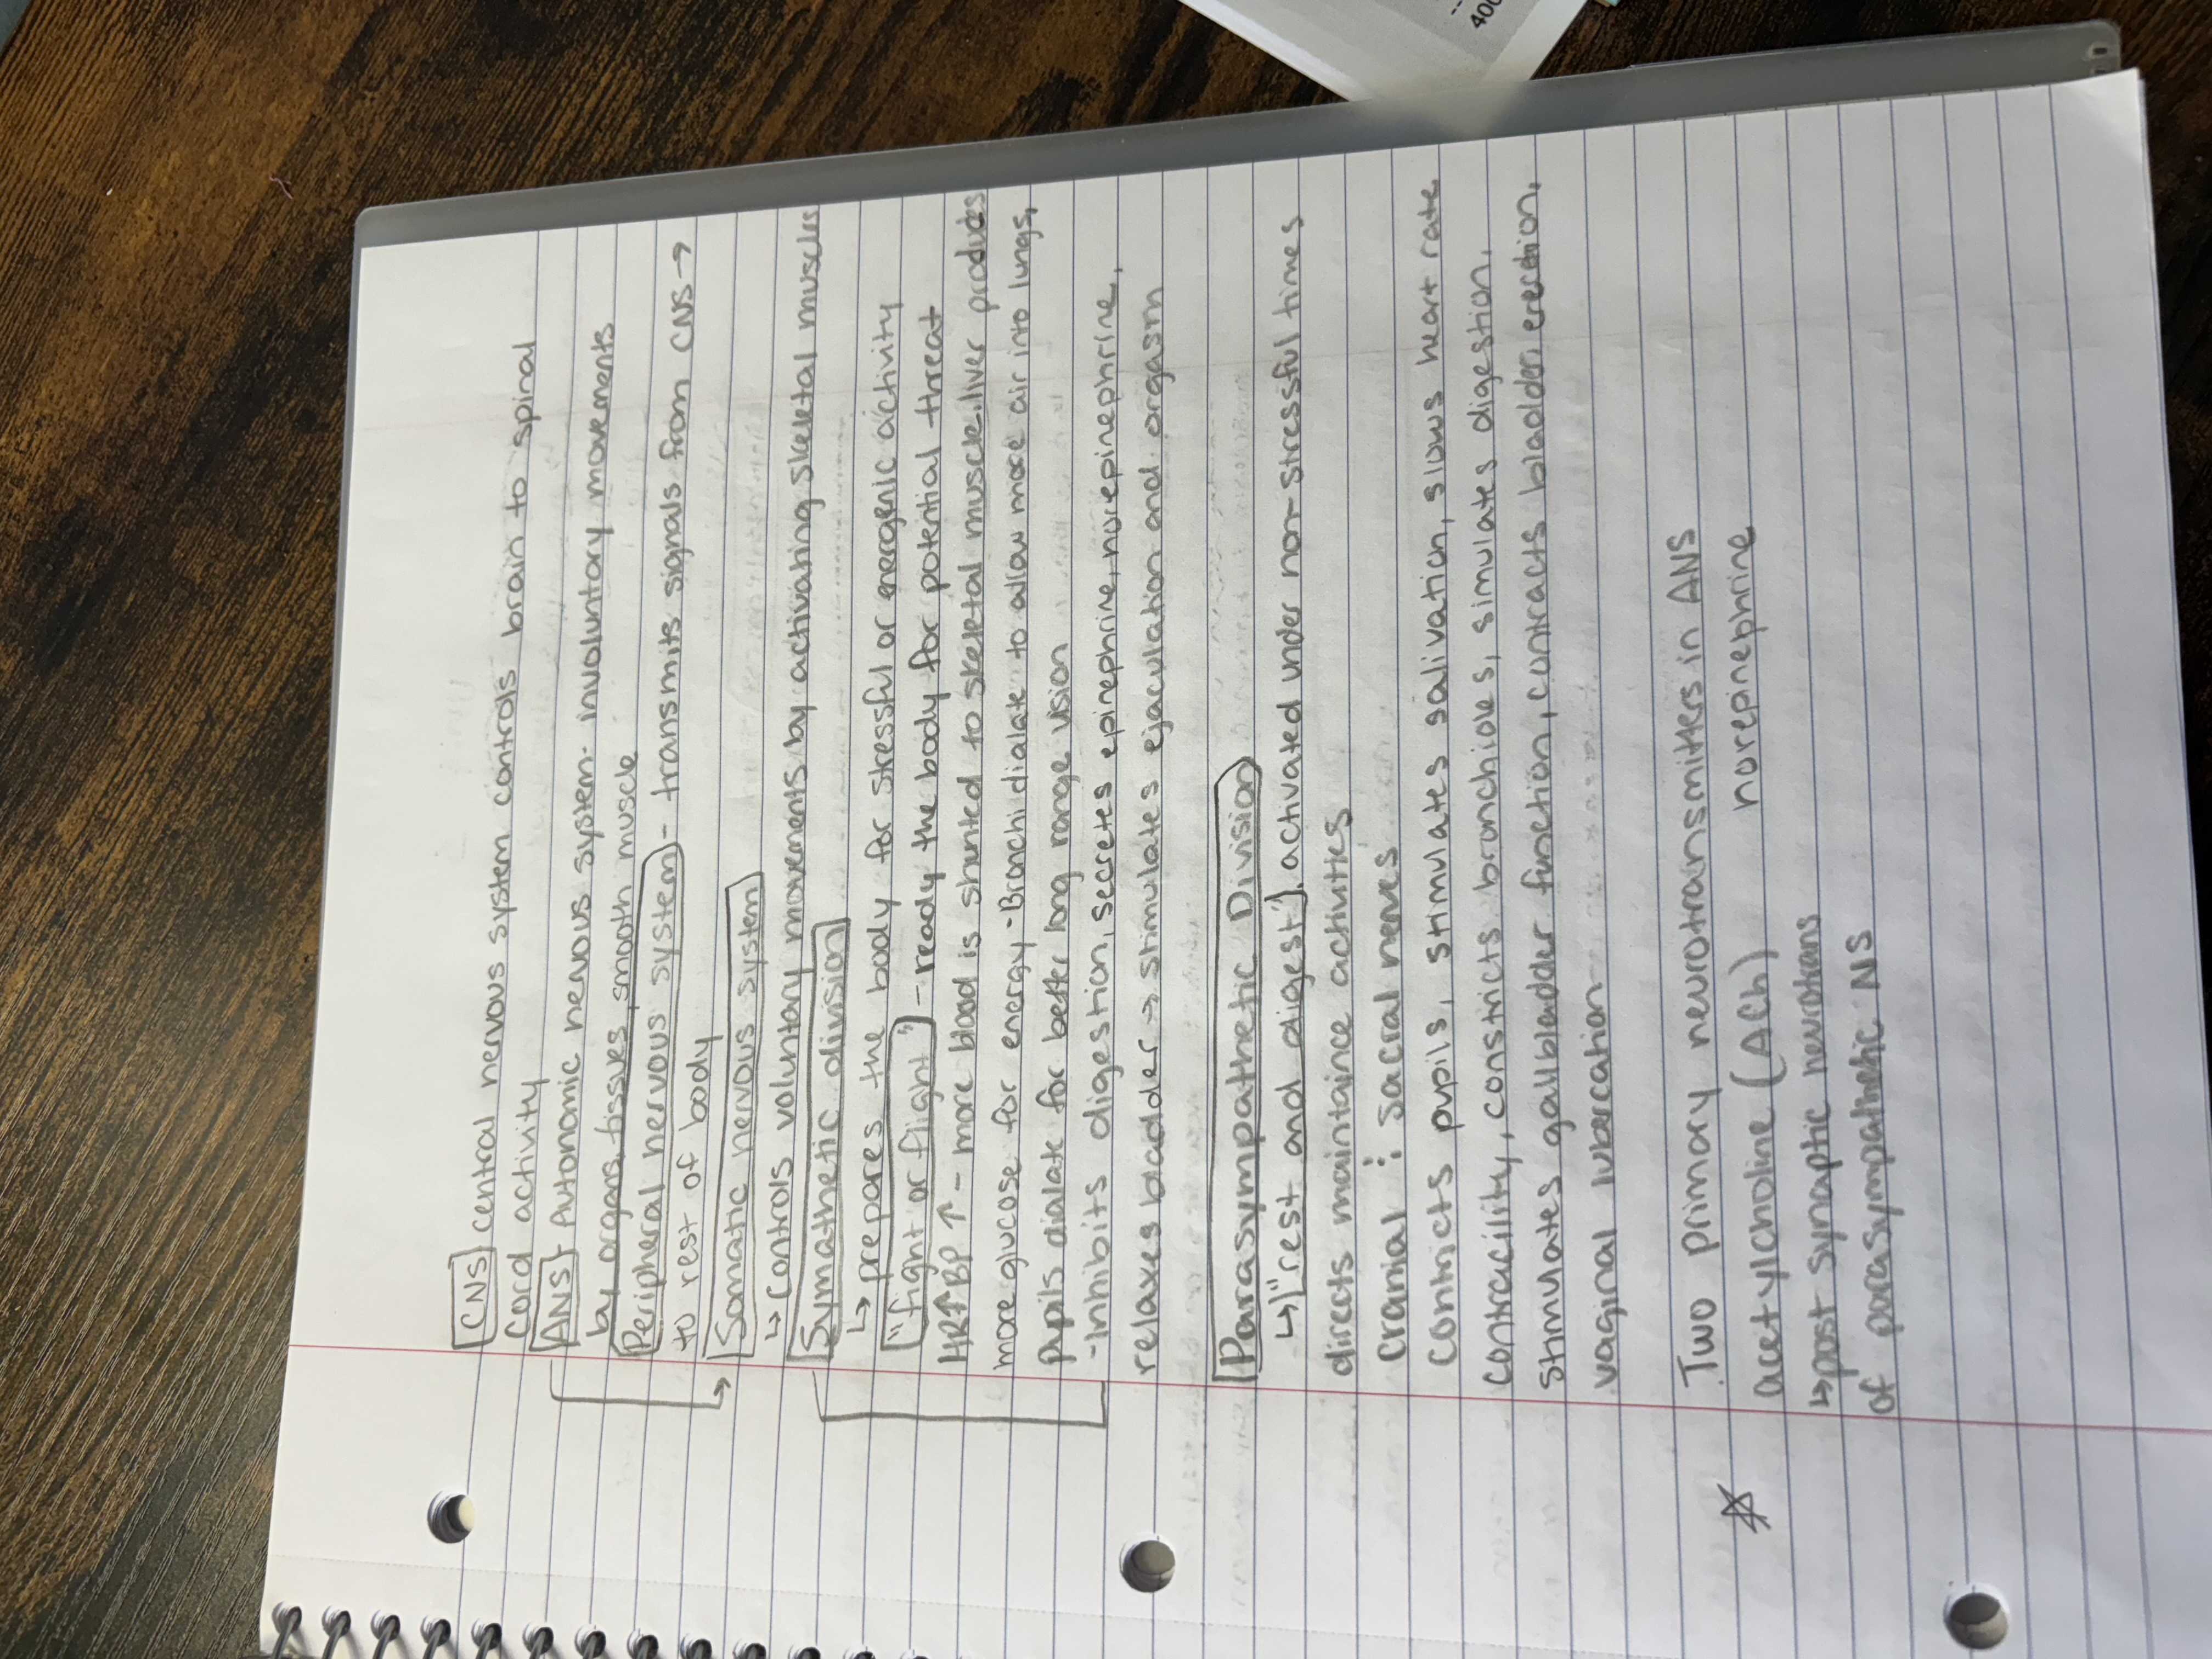 CNS central nervous system controls brain to spinal
cord activity
ANS - Autonomic nervous system - involuntary movements
by organs, tissues, smooth muscle
Peripheral nervous system - transmits signals from CNS →
to rest of body
Somatic nervous system
↳ controls voluntary movements by activating skeletal muscles
Symathetic division
↳ prepares the body for stressful or energenic activity
"fight or flight" - ready the body for potential threat
HR↑BP↑ - more blood is shunted to skeletal muscle. liver produces
more glucose for energy - Bronchi dialate to allow more air into lungs,
Pupils dialate for better long range vision
- Inhibits digestion, secretes epinephrine, norepinephrine,
relaxes bladder → stimulates ejaculation and orgasm
Parasympathetic Division
↳ "rest and digest", activated under non-stressful times
directs maintaince activities
cranial : sacral nerves
contricts pupils, stimulates salivation, slows heart rate
contracility, constricts bronchioles, simulates digestion,
stimulates gallbladder function, contracts bladder, erection,
vaginal lubercation
Two primary neurotransmitters in ANS
☆ acetylcholine (ACh) norepinephrine
↳ post synaptic neurotrans
of parasympathetic NS
400